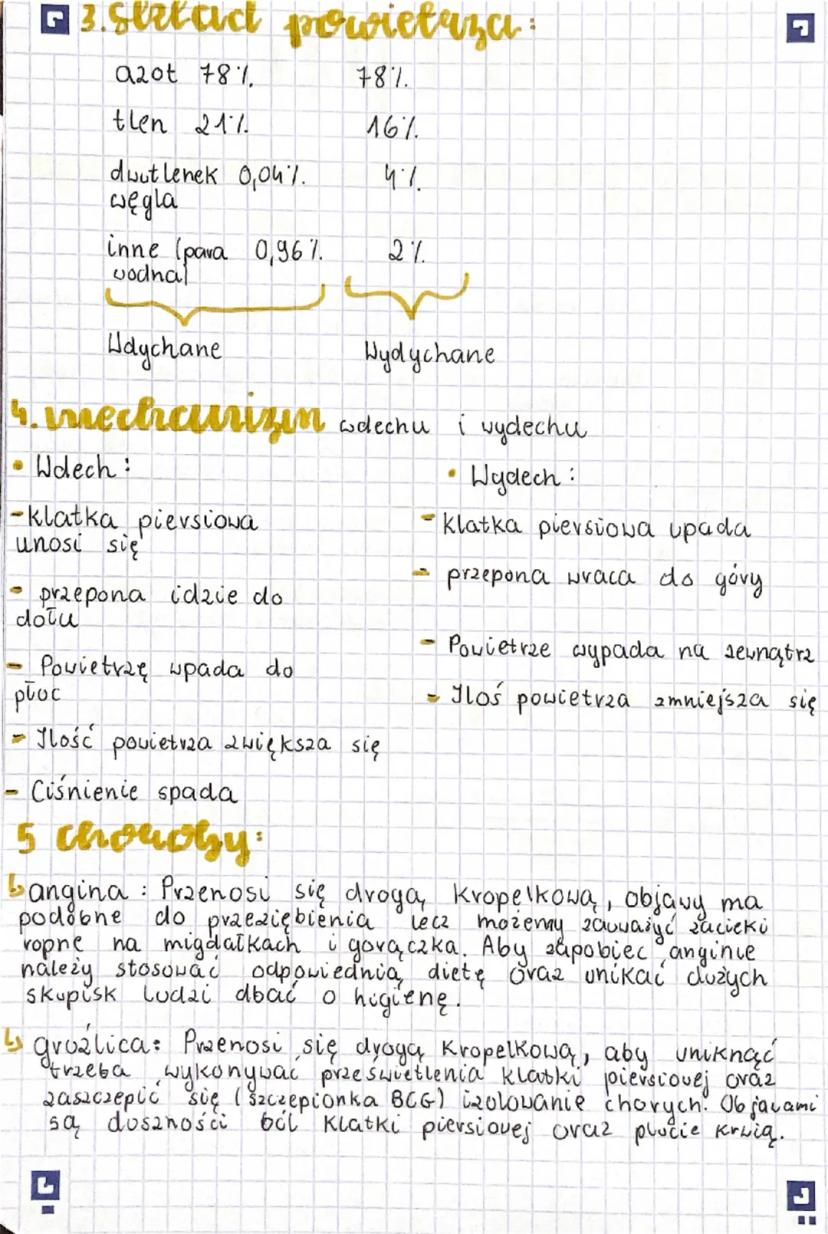 3. Skład powietrza:
azot 78% 78%
tlen 21% 16%
dwutlenek 0,04% 4%
węgla
inne (para 0,96% 2%
wodna)
Wdychane Wydychane
4. mechanizm wdechu i wydechu
• Wdech:
- klatka piersiowa
unosi się
- przepona idzie do
dołu
- Powietrzę wpada do
płuc
- Ilość powietrza zwiększa się
- Ciśnienie spada
• Wydech:
- klatka piersiowa upada
- przepona wraca do góry
- Powietrze wypada na zewnątrz
- Iloś powietrza zmniejsza się
5 choroby:
↳ angina: Przenosi się drogą kropelkową, objawy ma
podobne do przeziębienia lecz możemy zauważyć zacieki
ropne na migdałkach i gorączka. Aby zapobiec anginie
należy stosować odpowiednią dietę oraz unikać dużych
skupisk ludzi dbać o higienę.
↳ gruźlica: Przenosi się drogą kropelkową, aby uniknąć
trzeba wykonywać prześwietlenia klatki piersiowej oraz
zaszczepić się (szczepionka BCG) izolowanie chorych. Objawami
są duszności ból klatki piersiowej oraz plucie krwią.